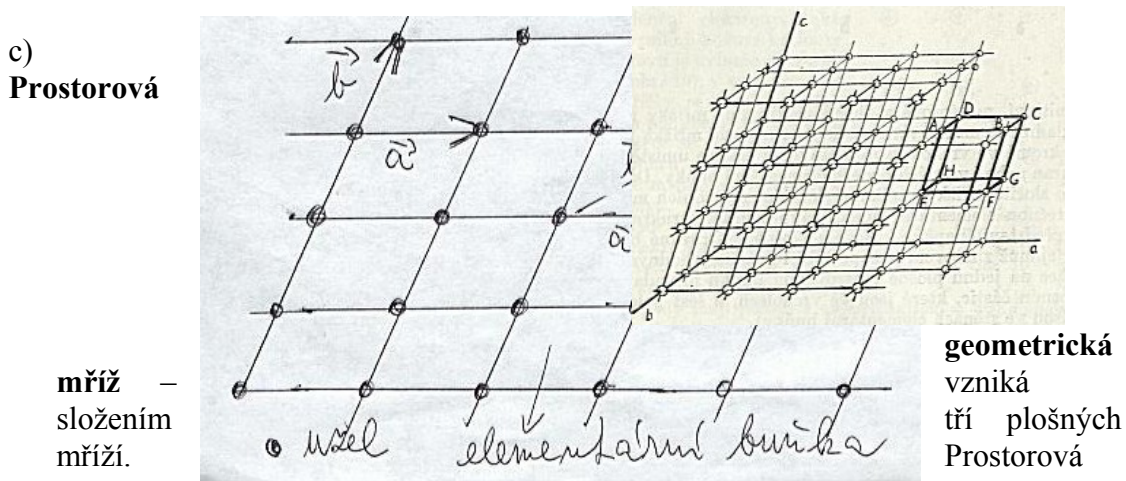 c)
Prostorová geometrická
mříž – vzniká
složením tří plošných
mříží. Prostorová
b
a
a
užel elementární buňka
c
D C
A B
H
E F G
a
b